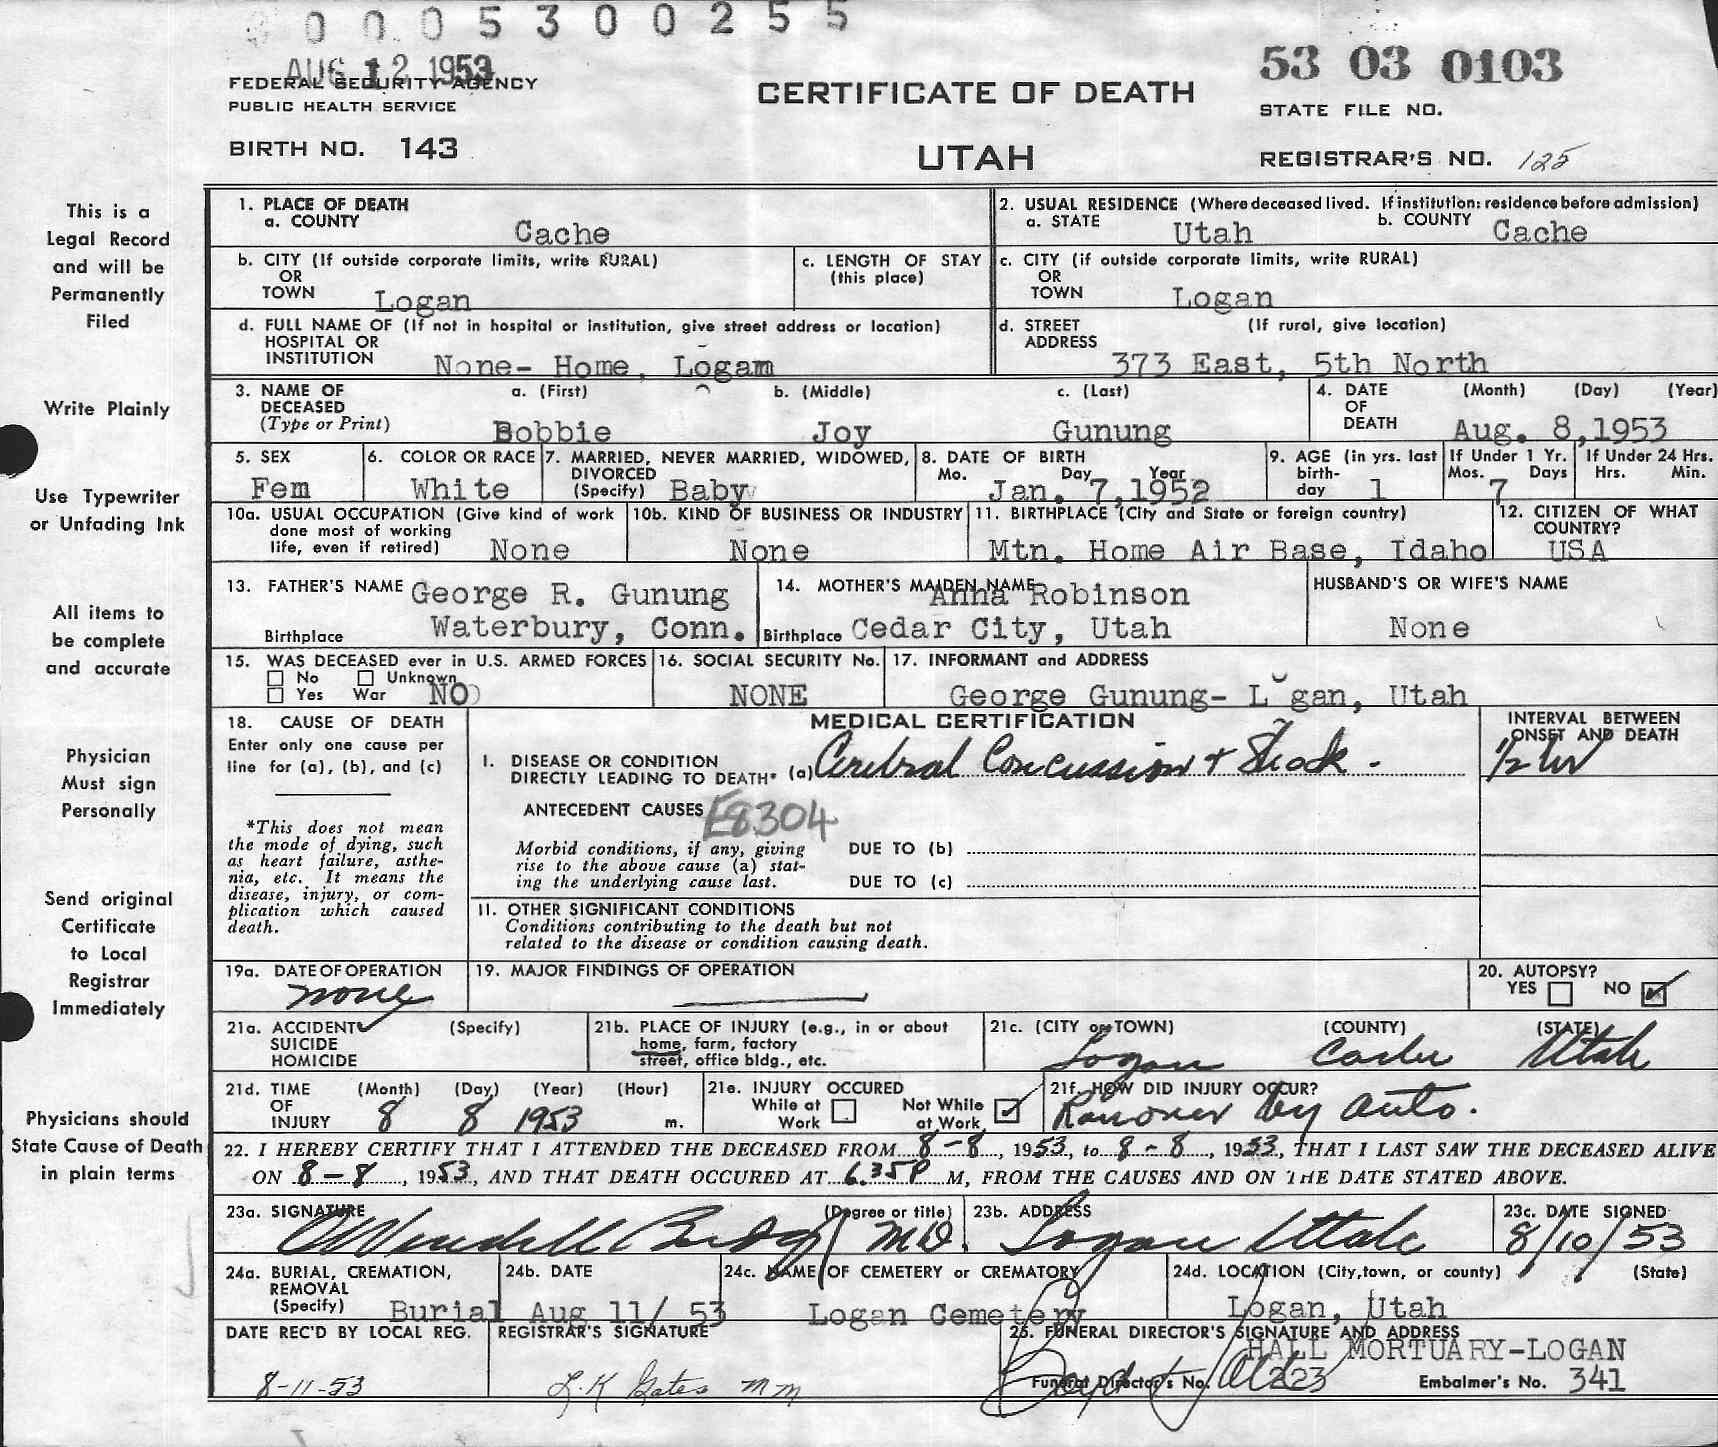 0 0 0 5 3 0 0 2 5 5
AUG 12 1953
FEDERAL SECURITY AGENCY
PUBLIC HEALTH SERVICE
BIRTH NO. 143
CERTIFICATE OF DEATH
UTAH
53 03 0103
STATE FILE NO.
REGISTRAR'S NO. 125
This is a
Legal Record
and will be
Permanently
Filed
Write Plainly
Use Typewriter
or Unfading Ink
All items to
be complete
and accurate
Physician
Must sign
Personally
Send original
Certificate
to Local
Registrar
Immediately
Physicians should
State Cause of Death
in plain terms
1. PLACE OF DEATH
a. COUNTY Cache
2. USUAL RESIDENCE (Where deceased lived. If institution: residence before admission)
a. STATE Utah b. COUNTY Cache
b. CITY (If outside corporate limits, write RURAL)
OR
TOWN Logan
c. LENGTH OF STAY
(this place)
c. CITY (if outside corporate limits, write RURAL)
OR
TOWN Logan
d. FULL NAME OF (If not in hospital or institution, give street address or location)
HOSPITAL OR
INSTITUTION None- Home, Logam
d. STREET (If rural, give location)
ADDRESS 373 East, 5th North
3. NAME OF a. (First) b. (Middle) c. (Last)
DECEASED
(Type or Print) Bobbie Joy Gunung
4. DATE (Month) (Day) (Year)
OF
DEATH Aug. 8,1953
5. SEX
Fem
6. COLOR OR RACE
White
7. MARRIED, NEVER MARRIED, WIDOWED,
DIVORCED
(Specify) Baby
8. DATE OF BIRTH
Mo. Day Year
Jan. 7,1952
9. AGE (in yrs. last
birth-
day 1
If Under 1 Yr.
Mos. Days
7
If Under 24 Hrs.
Hrs. Min.
10a. USUAL OCCUPATION (Give kind of work
done most of working
life, even if retired) None
10b. KIND OF BUSINESS OR INDUSTRY
None
11. BIRTHPLACE (City and State or foreign country)
Mtn. Home Air Base, Idaho
12. CITIZEN OF WHAT
COUNTRY?
USA
13. FATHER'S NAME George R. Gunung
Birthplace Waterbury, Conn.
14. MOTHER'S MAIDEN NAME Anna Robinson
Birthplace Cedar City, Utah
HUSBAND'S OR WIFE'S NAME
None
15. WAS DECEASED ever in U.S. ARMED FORCES
No Unknown
Yes War NO
16. SOCIAL SECURITY No.
NONE
17. INFORMANT and ADDRESS
George Gunung- L gan, Utah
18. CAUSE OF DEATH
Enter only one cause per
line for (a), (b), and (c)
*This does not mean
the mode of dying, such
as heart failure, asthe-
nia, etc. It means the
disease, injury, or com-
plication which caused
death.
MEDICAL CERTIFICATION
I. DISEASE OR CONDITION
DIRECTLY LEADING TO DEATH* (a) Cerebral Concussion + Shock -
INTERVAL BETWEEN
ONSET AND DEATH
1/2 hr
ANTECEDENT CAUSES E8304
Morbid conditions, if any, giving
rise to the above cause (a) stat-
ing the underlying cause last.
DUE TO (b)
DUE TO (c)
II. OTHER SIGNIFICANT CONDITIONS
Conditions contributing to the death but not
related to the disease or condition causing death.
19a. DATE OF OPERATION
none
19. MAJOR FINDINGS OF OPERATION
20. AUTOPSY?
YES NO
21a. ACCIDENT (Specify)
SUICIDE
HOMICIDE
21b. PLACE OF INJURY (e.g., in or about
home, farm, factory
street, office bldg., etc.
21c. (CITY or TOWN) (COUNTY) (STATE)
Logan Cache Utah
21d. TIME (Month) (Day) (Year) (Hour)
OF
INJURY 8 8 1953 m.
21e. INJURY OCCURED
While at Not While
Work at Work
21f. HOW DID INJURY OCCUR?
Ran over by auto.
22. I HEREBY CERTIFY THAT I ATTENDED THE DECEASED FROM 8-8, 1953, to 8-8, 1953, THAT I LAST SAW THE DECEASED ALIVE
ON 8-8, 1953, AND THAT DEATH OCCURED AT 6.35P M, FROM THE CAUSES AND ON THE DATE STATED ABOVE.
23a. SIGNATURE (Degree or title)
Wendell M.D.
23b. ADDRESS
Logan Utah
23c. DATE SIGNED
8/10/53
24a. BURIAL, CREMATION,
REMOVAL
(Specify) Burial
24b. DATE
Aug 11/ 53
24c. NAME OF CEMETERY or CREMATORY
Logan Cemetery
24d. LOCATION (City,town, or county) (State)
Logan, Utah
DATE REC'D BY LOCAL REG.
8-11-53
REGISTRAR'S SIGNATURE
L.K Gates mm
25. FUNERAL DIRECTOR'S SIGNATURE AND ADDRESS
HALL MORTUARY-LOGAN
Funeral Director's No. 223 Embalmer's No. 341